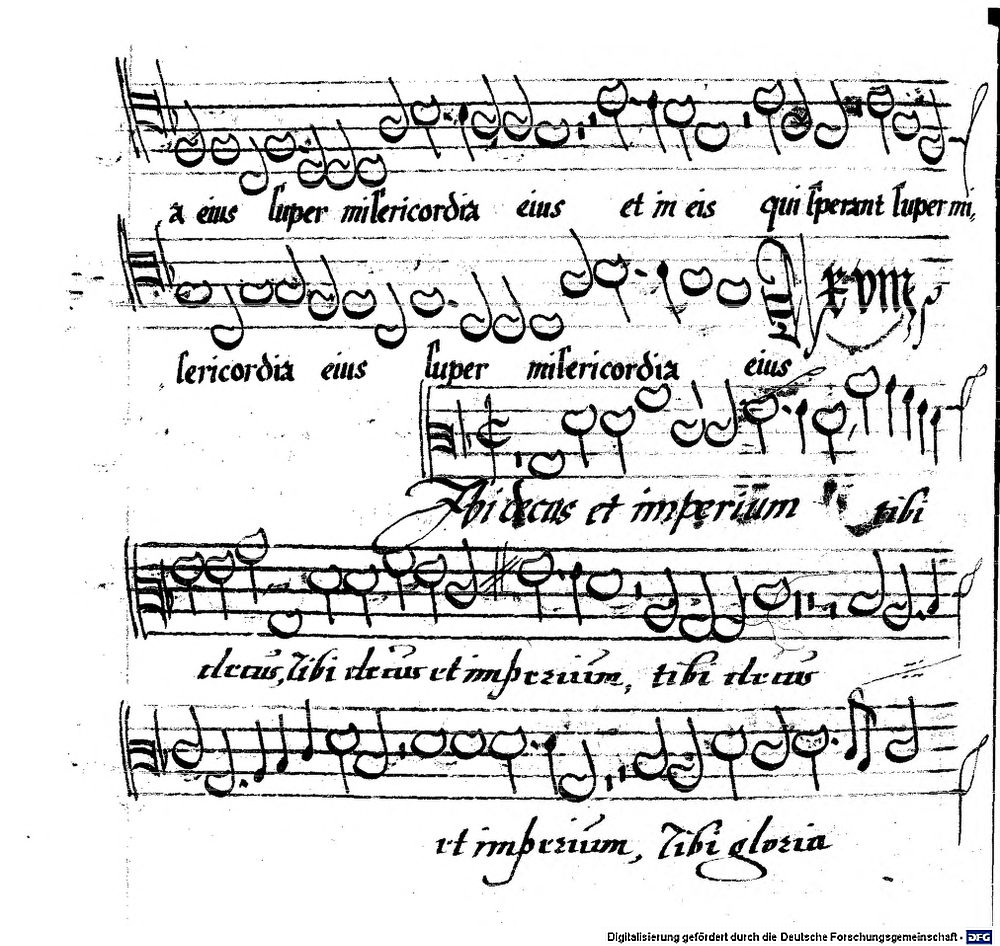 a eius super misericordia eius et in eis qui sperant super mi,
sericordia eius super misericordia eius
Tibi decus et imperium tibi
decus, Tibi decus et imperium, tibi decus
et imperium, Tibi gloria
Digitalisierung gefördert durch die Deutsche Forschungsgemeinschaft - DFG